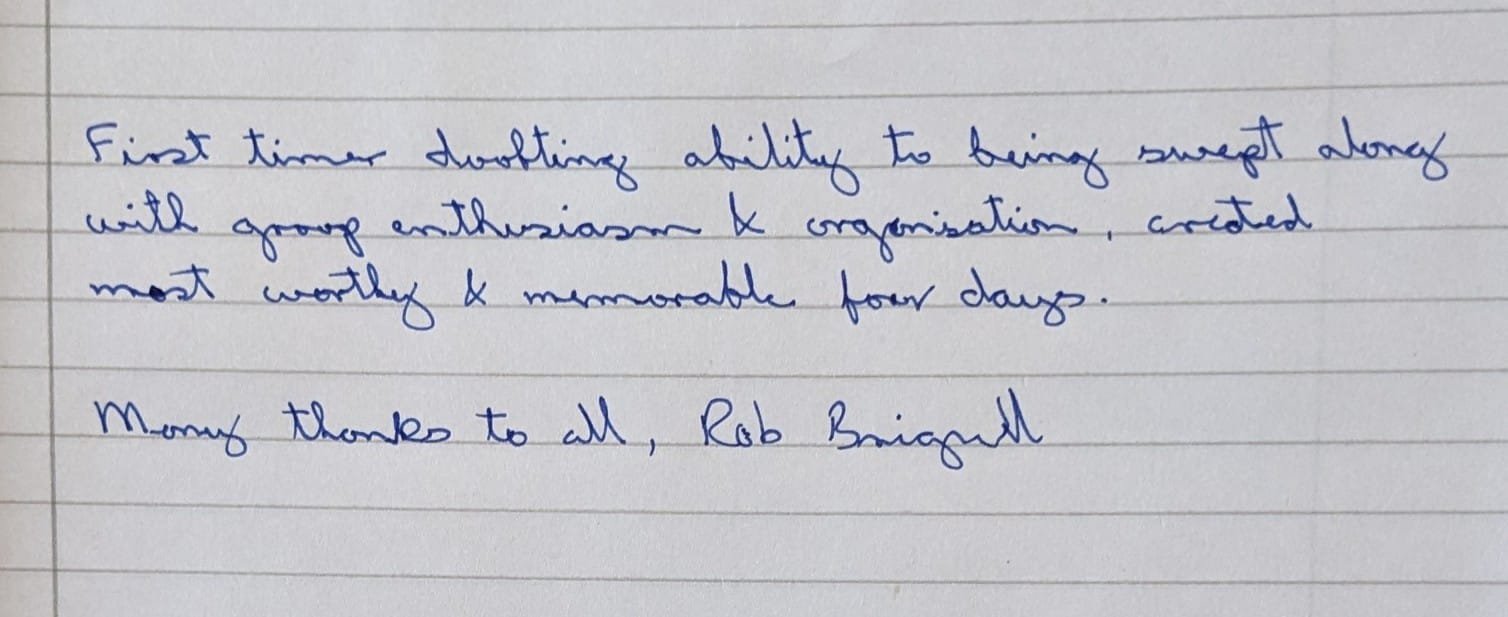 First timer doubting ability to being swept along
with group enthusiasm & organisation, created
most worthy & memorable four days.
Many thanks to all, Rob